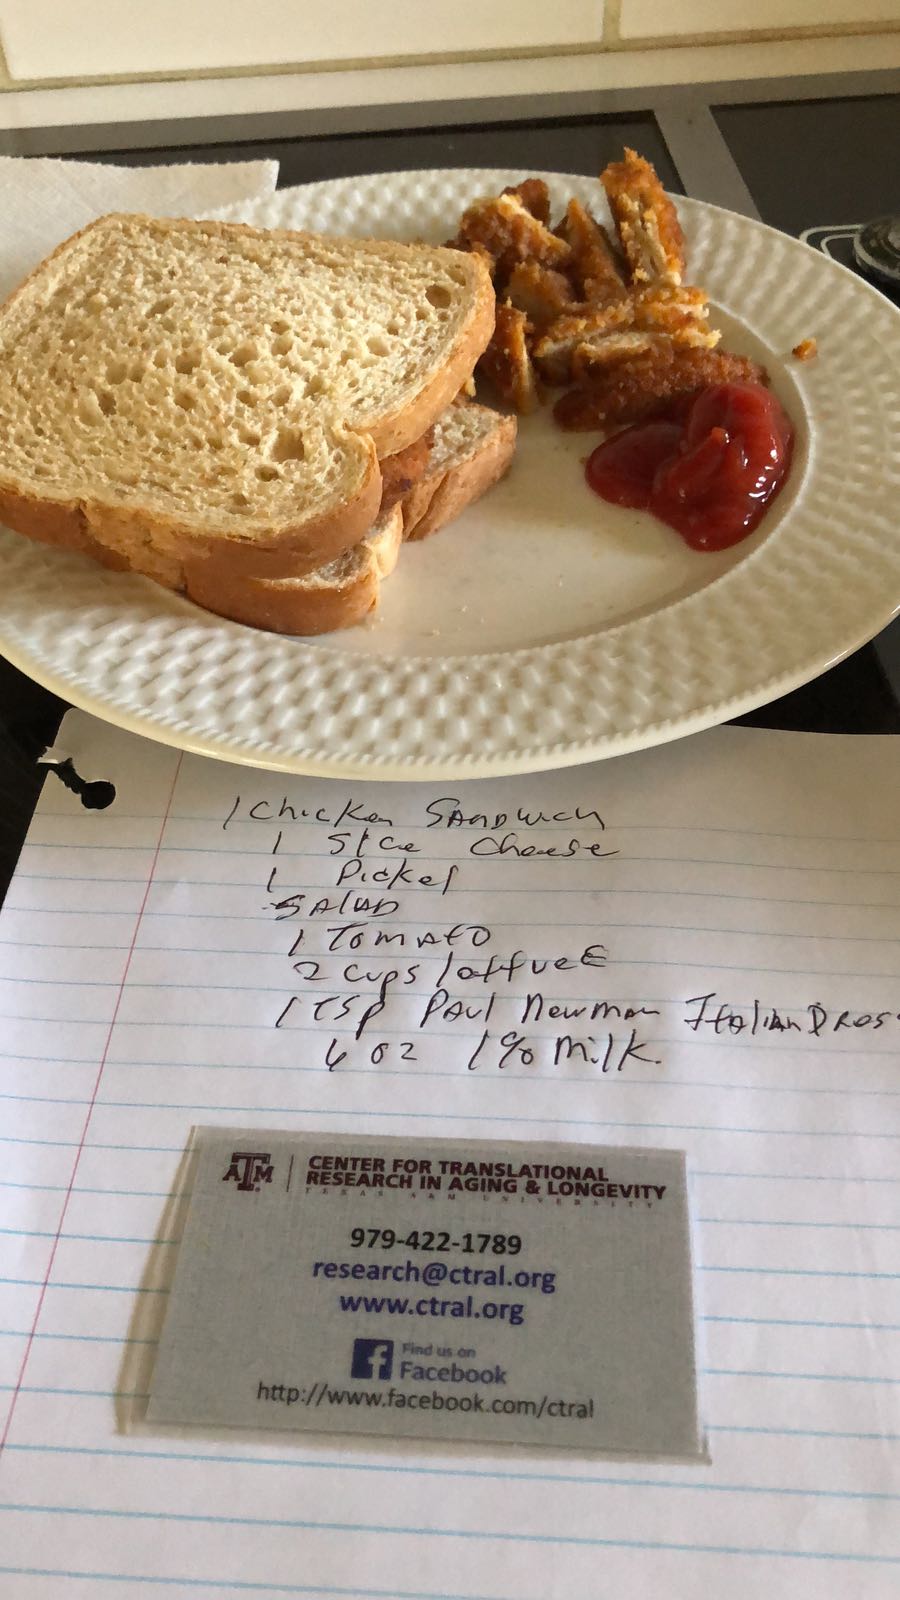 1 Chicken Sandwich
1 Slce Cheese
1 Pickel
Salad
1 Tomato
2 cups lattuce
1 TSP Paul Newman Italian Dres
6 oz 1% Milk.
ATM CENTER FOR TRANSLATIONAL
RESEARCH IN AGING & LONGEVITY
TEXAS A&M UNIVERSITY
979-422-1789
research@ctral.org
www.ctral.org
f Find us on
Facebook
http://www.facebook.com/ctral